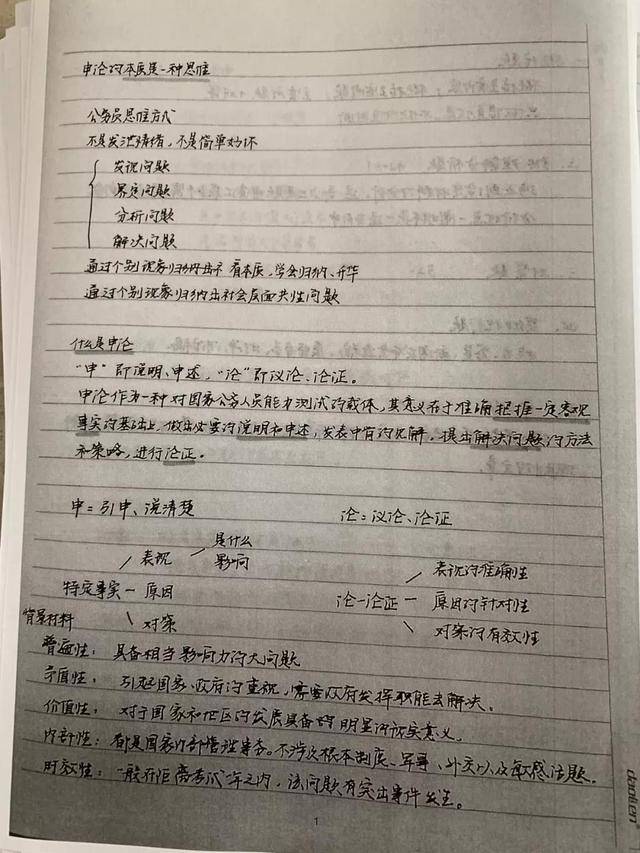 申论的本质是一种思维
公务员思维方式
不是发泄情绪，不是简单好坏
发现问题
界定问题
分析问题
解决问题
通过个别现象归纳出 看本质，学会归纳、升华
通过个别现象归纳出社会层面共性问题
什么是申论
"申"即说明、申述，"论"即议论、论证。
申论作为一种对国家公务人员能力测试的载体，其意义在于准确把握一定客观
事实的基础上，做出必要的说明和申述，发表中肯的见解，提出解决问题的方法
和策略，进行论证。
申=引申、说清楚 论=议论、论证
是什么
表现 影响 表现的准确性
特定事实－原因 论－论证－原因的针对性
对策 对策的有效性
背景材料
普遍性：具备相当影响力的大问题
矛盾性：引起国家、政府的重视，需要政府发挥职能去解决。
价值性：对于国家和地区的发展具备明显的现实意义。
内部性：都是国家内部管理事务。不涉及根本制度、军事、外交以及敏感话题。
时效性：一般在距离考试一年之内，该问题有突出事件发生。
1
daolen